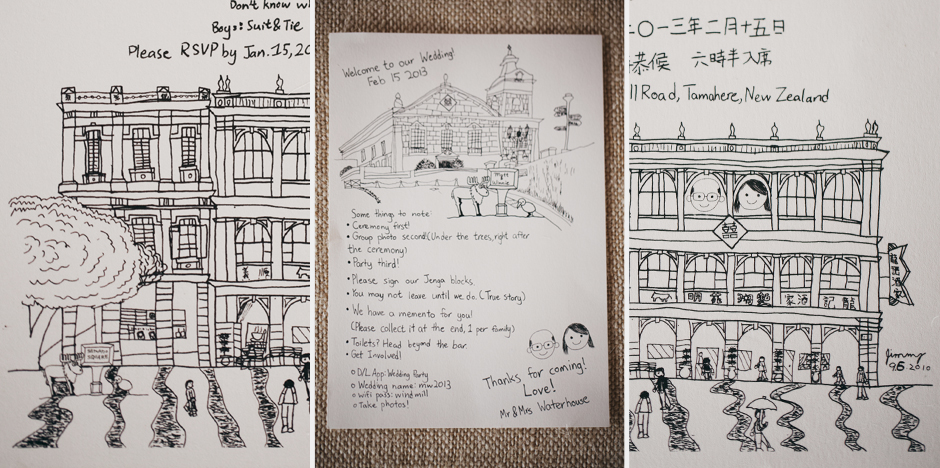 Don't know wh
Boys: Suit & Tie
Please RSVP by Jan. 15, 20
義順
SENADO
SQUARE
Welcome to our Wedding!
Feb 15 2013
Some things to note:
• Ceremony first!
• Group photo second! (Under the trees, right after
the ceremony!)
• Party third!
• Please sign our Jenga blocks.
• You may not leave until we do. (True story)
• We have a memento for you!
(Please collect it at the end, 1 per family)
• Toilets? Head beyond the bar.
• Get Involved!
o D/L App: Wedding Party
o Wedding name: mw2013
o wifi pass: windmill
o Take photos!
Thanks for coming!
Love!
Mr & Mrs Waterhouse
二〇一三年二月十五日
恭侯 六時半入席
ll Road, Tamahere, New Zealand
囍
家酒記龍
Jimmy
9.5 2010